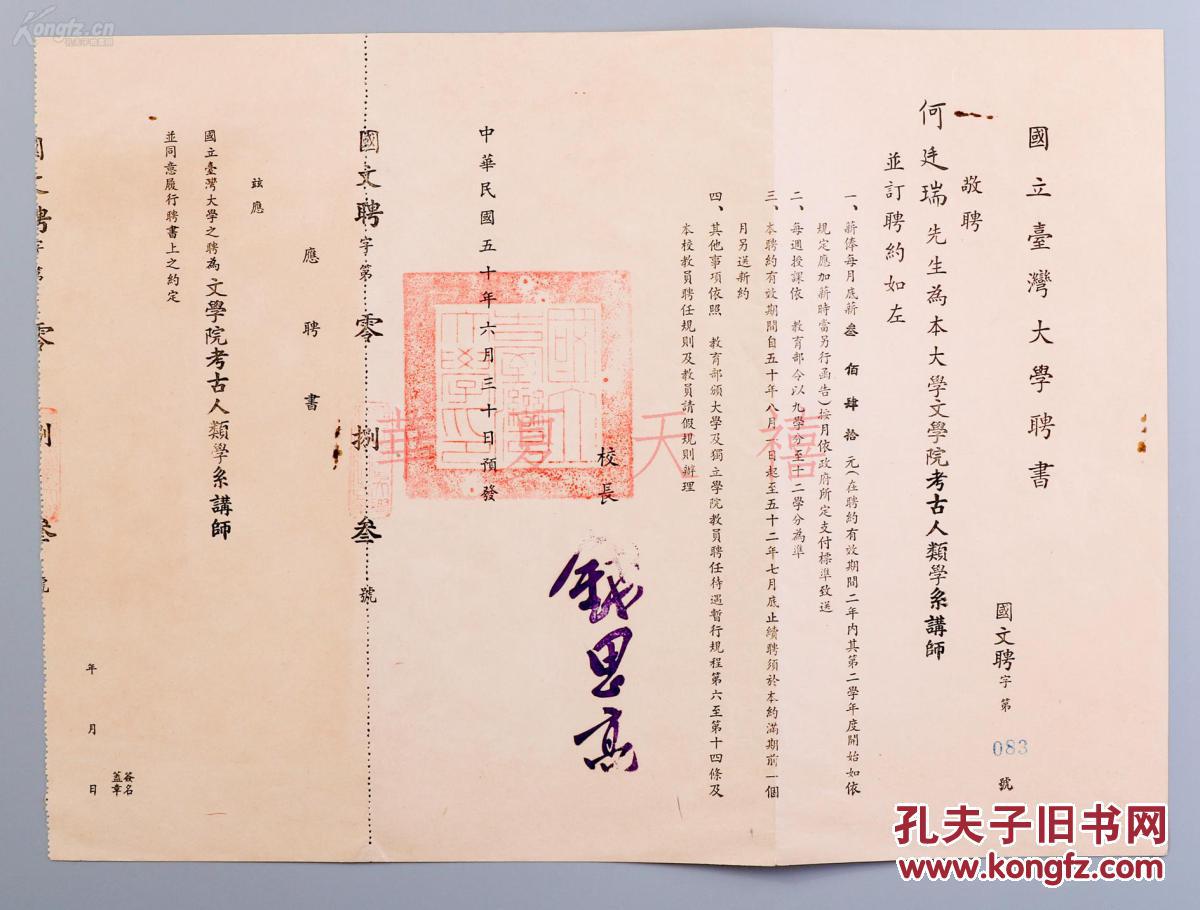 國立臺灣大學聘書
國文聘字第083號
敬聘
何廷瑞先生為本大學文學院考古人類學系講師
並訂聘約如左
一、薪俸每月底薪叁佰肆拾元(在聘約有效期間二年內其第二學年度開始如依
規定應加薪時當另行函告)按月依政府所定支付標準致送
二、每週授課依 教育部令以九學分至十二學分為準
三、本聘約有效期間自五十年八月一日起至五十二年七月底止續聘須於本約滿期前一個
月另送新約
四、其他事項依照 教育部頒大學及獨立學院教員聘任待遇暫行規程第六至第十四條及
本校教員聘任規則及教員請假規則辦理
校長
錢思亮
中華民國五十年六月三十日預發
國立臺灣大學印
國文聘字第零捌叁號
應聘書
茲應
國立臺灣大學之聘為文學院考古人類學系講師
並同意履行聘書上之約定
簽名
蓋章
年月日
國文聘字第零捌叁號
華夏天禧
Kongfz.cn
孔夫子旧书网
www.kongfz.com